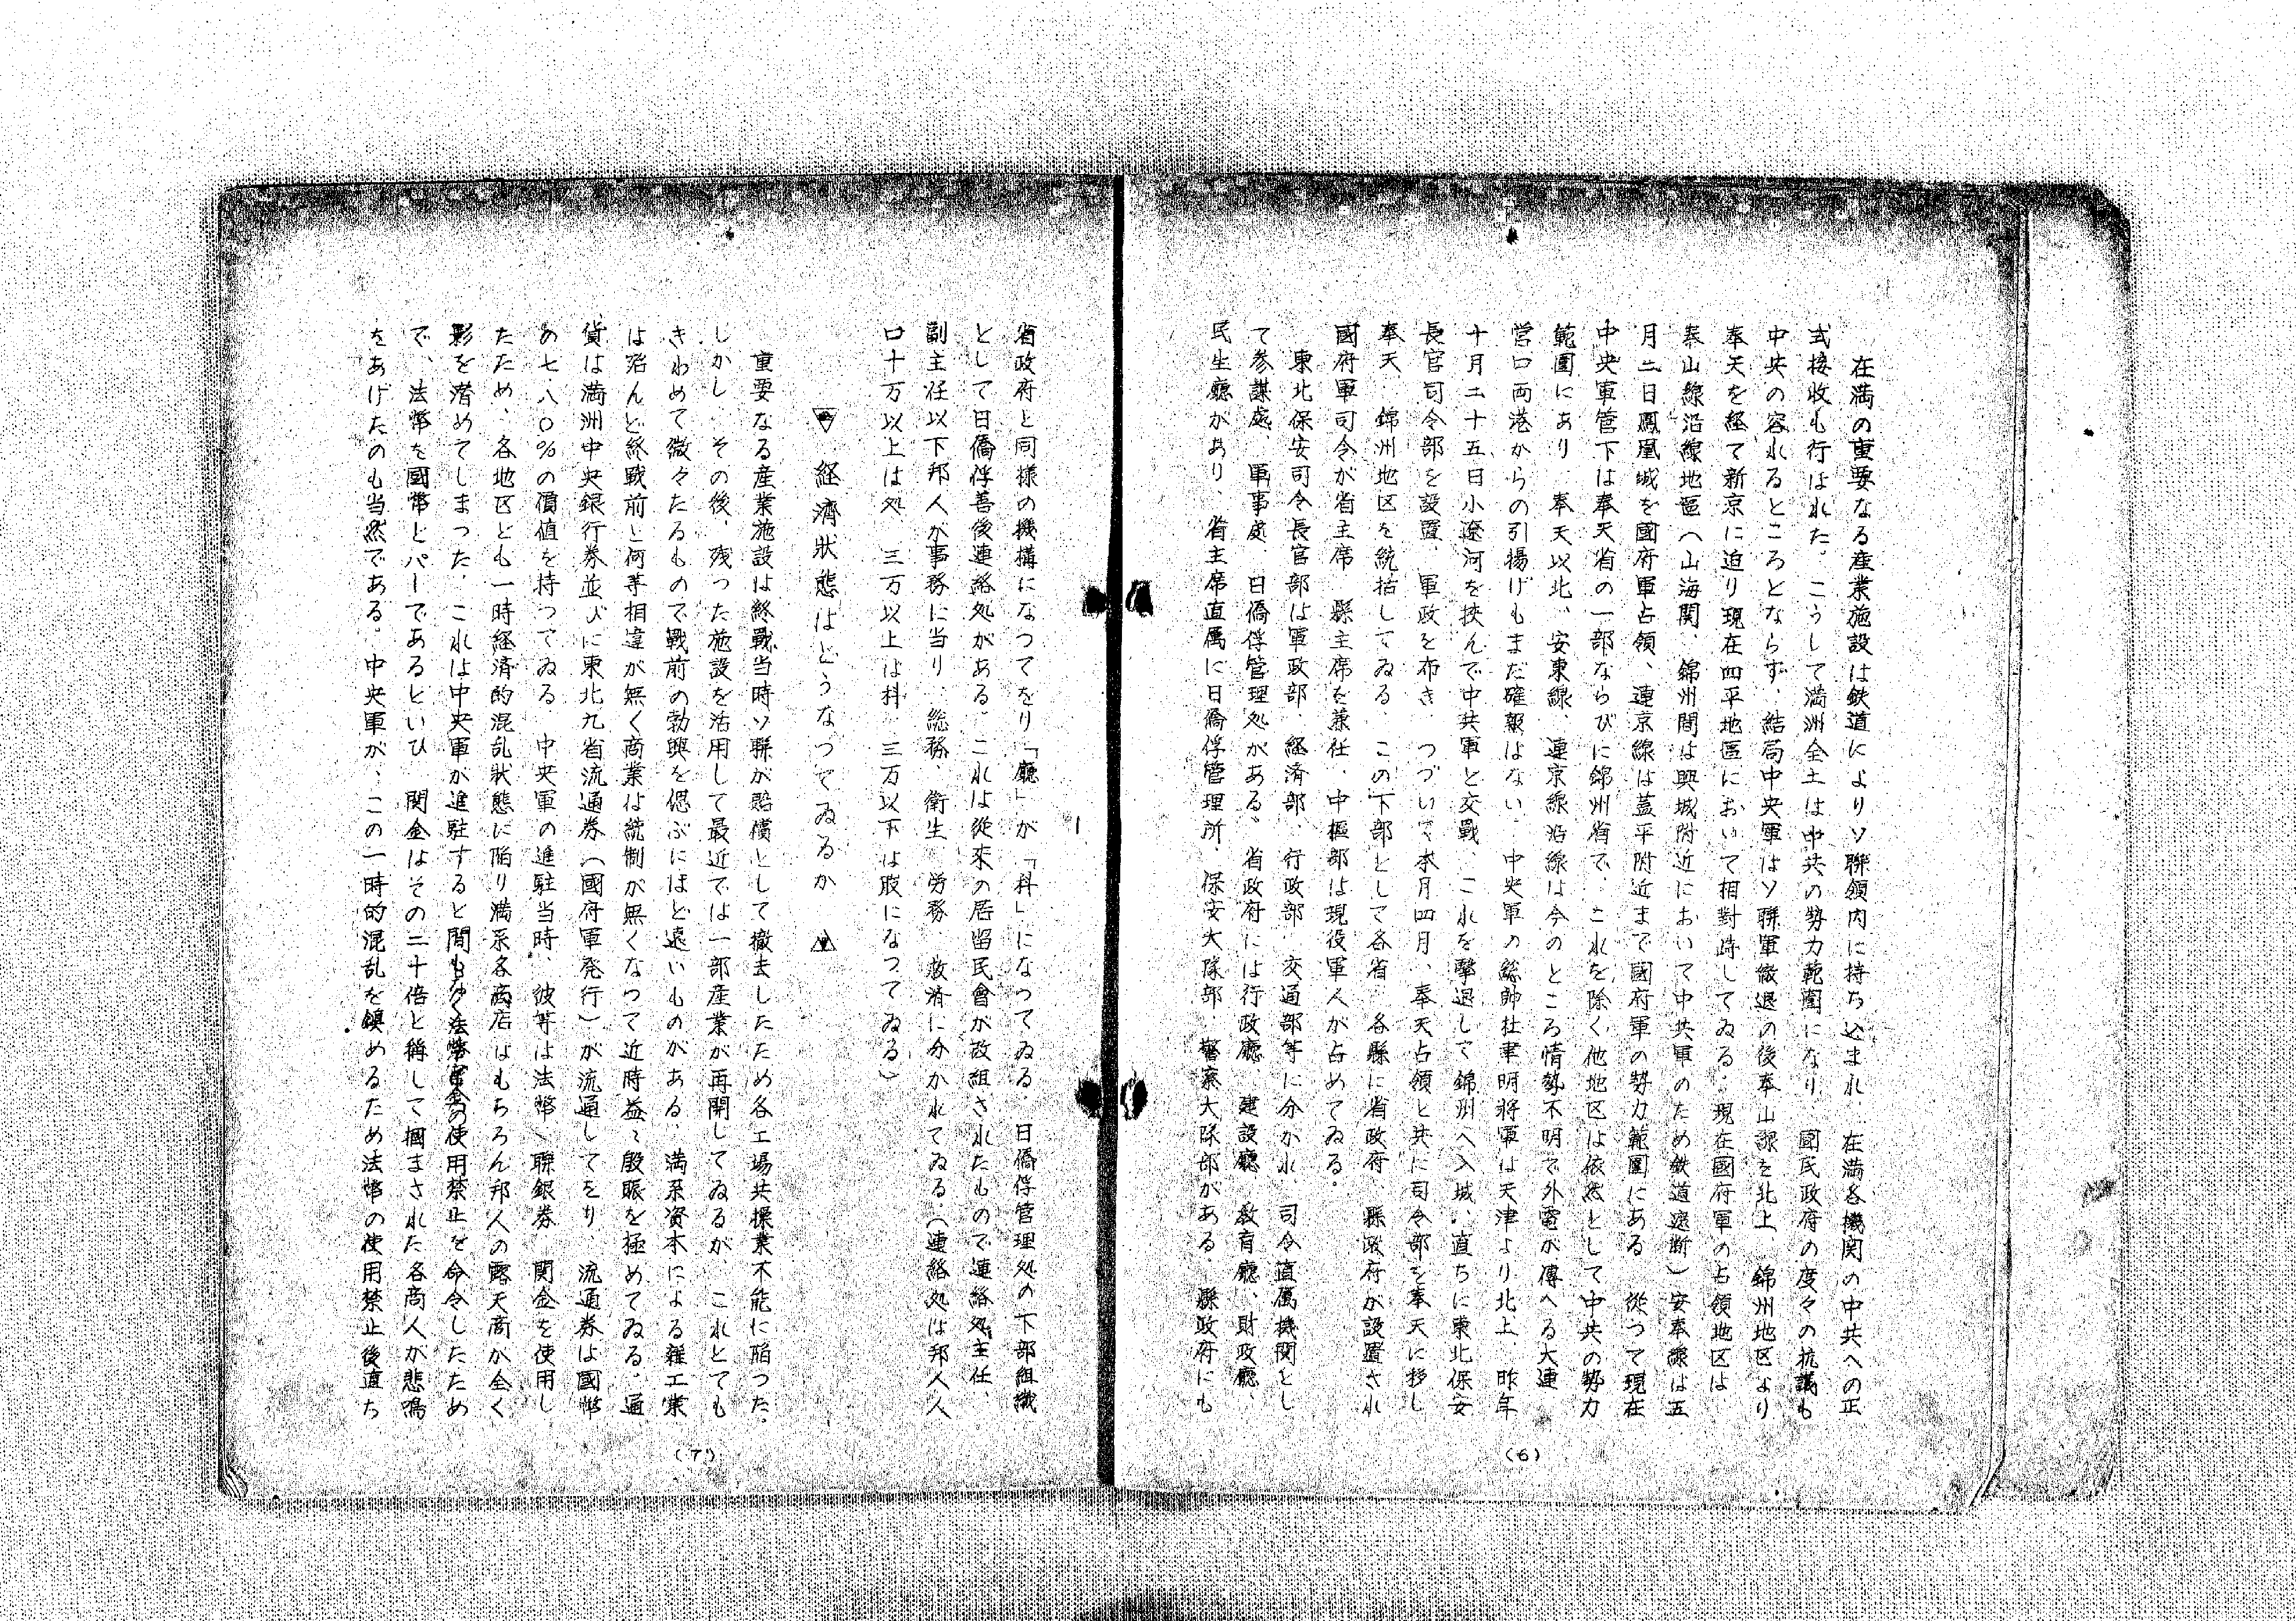 在満の重要なる産業施設は鉄道によりソ聯領内に持ち込まれ、在満各機関の中共への正
式接收も行はれた。こうして満洲全土は中共の勢力範囲になり、國民政府の度々の抗議も
中共の容れるところとならず、結局中央軍はソ聯軍撤退の後奉山線を北上、錦州地区より
奉天を経て新京に迫り現在四平地區において相對峙してゐる。現在國府軍の占領地区は
奉山線沿線地區（山海関、錦州間は興城附近において中共軍のため鉄道遮断）安奉線は五
月二日鳳凰城を國府軍占領、連京線は蓋平附近まで國府軍の勢力範圍にある 従つて現在
中央軍管下は奉天省の一部ならびに錦州省で、これを除く他地区は依然として中共の勢力
範圍にあり、奉天以北、安東線、連京線沿線は今のところ情勢不明で外電が傳へる大連
営口両港からの引揚げもまだ確報はない、中央軍の総帥杜聿明將軍は天津より北上、昨年
十月二十五日小遼河を挾んで中共軍と交戰、これを擊退して錦州へ入城、直ちに東北保安
長官司令部を設置、軍政を布き、つづいて本月四月、奉天占領と共に司令部を奉天に移し
奉天、錦州地区を統括してゐる この下部として各省、各縣に省政府、縣政府が設置され
國府軍司令が省主席、縣主席を兼任、中樞部は現役軍人が占めてゐる。
東北保安司令長官部は軍政部、経済部、行政部、交通部等に分かれ、司令直属機関とし
て参謀處、軍事處、日僑俘管理処がある。省政府には行政廳、建設廳、敎育廳、財政廳、
民生廳があり、省主席直属に日僑俘管理所、保安大隊部、警察大隊部がある、縣政府にも
（6）
省政府と同様の機構になつてをり「廳」が「科」になつてゐる、日僑俘管理処の下部組織
として日僑俘善後連絡処がある、これは從来の居留民會が改組されたもので連絡処主任、
副主任以下邦人が事務に当り、総務、衛生、労務、救済に分かれてゐる（連絡処は邦人人
口十万以上は処、三万以上は科、三万以下は股になつてゐる）
経濟狀態はどうなつてゐるか
重要なる産業施設は終戰当時ソ聯が賠償として撤去したため各工場共操業不能に陥つた。
しかし、その後、残つた施設を活用して最近では一部産業が再開してゐるが、これとても
きわめて微々たるもので戰前の勃興を偲ぶにほど遠いものがある、満系资本による雑工業
は殆んど終戰前と何等相違が無く商業は統制が無くなつて近時益々殷賑を極めてゐる、通
貨は満洲中央銀行券並びに東北九省流通券（國府軍発行）が流通してをり、流通券は國幣
の七、八〇％の價値を持つてゐる、中央軍の進駐当時、彼等は法幣、聯銀券、関金を使用し
たため、各地区とも一時経済的混乱狀態に陥り満系各商店はもちろん邦人の露天商が全く
影を潜めてしまつた、これは中央軍が進駐すると間もなく法幣、関金の使用禁止を命令したため
で、法幣を國幣とパーであるといひ、関金はその二十倍と稱して摑まされた各商人が悲鳴
をあげたのも当然である、中央軍が、この一時的混乱を鎮めるため法幣の使用禁止後直ち
（7）